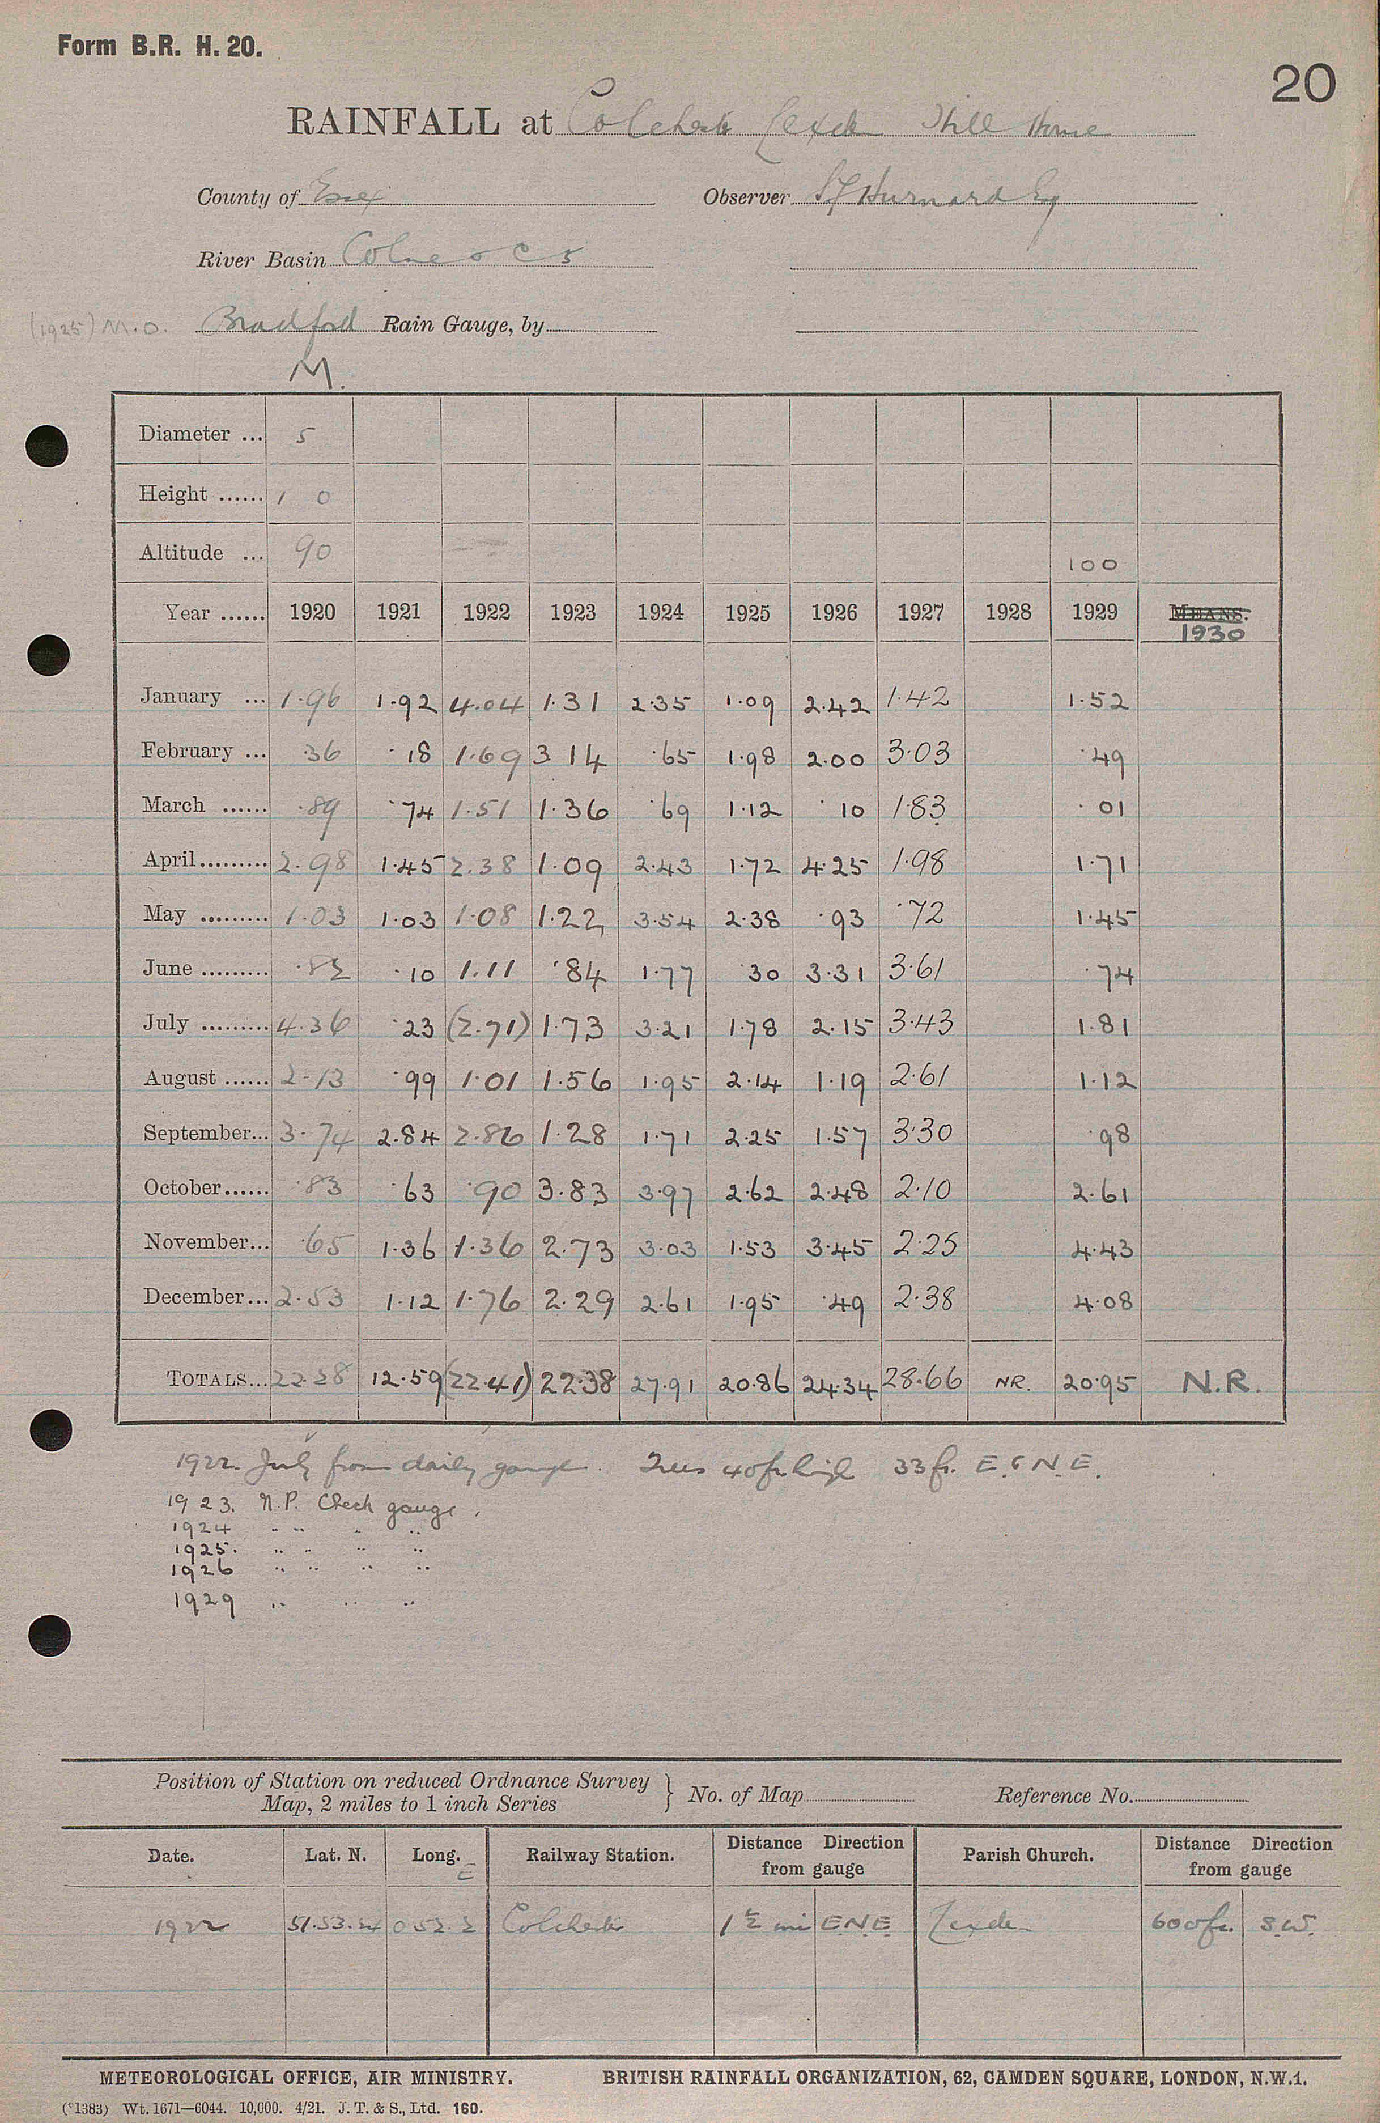 Form B.R. H. 20.
20
RAINFALL at Colchester Lexden Hill House
County of Essex Observer S F Hurnard Esq
River Basin Colne
(1925) M.O. Bradford Rain Gauge, by
M.
Diameter ... 5
Height ...... 1 0
Altitude ... 90 100
Year ...... 1920 1921 1922 1923 1924 1925 1926 1927 1928 1929 MEANS.
1930
January ... 1.96 1.92 4.04 1.31 2.35 1.09 2.42 1.42 1.52
February ... .36 .18 1.69 3 14 .65 1.98 2.00 3.03 .49
March ...... .89 .74 1.51 1.36 .69 1.12 .10 1.83 .01
April......... 2.98 1.45 2.38 1.09 2.43 1.72 4.25 1.98 1.71
May ......... 1.03 1.03 1.08 1.22 3.54 2.38 .93 .72 1.45
June ......... .82 .10 1.11 .84 1.77 .30 3.31 3.61 .74
July ......... 4.36 .23 (2.71) 1.73 3.21 1.78 2.15 3.43 1.81
August ...... 2.13 .99 1.01 1.56 1.95 2.14 1.19 2.61 1.12
September... 3.74 2.84 2.86 1.28 1.71 2.25 1.57 3.30 .98
October...... .83 .63 .90 3.83 3.97 2.62 2.48 2.10 2.61
November... .65 1.36 1.36 2.73 3.03 1.53 3.45 2.25 4.43
December... 2.53 1.12 1.76 2.29 2.61 1.95 .49 2.38 4.08
TOTALS... 22.28 12.59 (22.41) 22.38 27.91 20.86 24.34 28.66 NR. 20.95 N.R.
1922. July from daily gauge. Trees 40 ft high 33 ft. E. & N.E.
1923. N.P. Check gauge.
1924 " " " "
1925. " " " "
1926 " " " "
1929 " " "
Position of Station on reduced Ordnance Survey
Map, 2 miles to 1 inch Series } No. of Map Reference No.
Date. Lat. N. Long. E Railway Station. Distance Direction from gauge Parish Church. Distance Direction from gauge
1922 51.53.24 0 52.2 Colchester 1½ mi E.N.E Lexden 600 ft. S.W.
METEOROLOGICAL OFFICE, AIR MINISTRY. BRITISH RAINFALL ORGANIZATION, 62, CAMDEN SQUARE, LONDON, N.W.1.
(*1383) Wt. 1671—6044. 10,000. 4/21. J. T. & S., Ltd. 160.